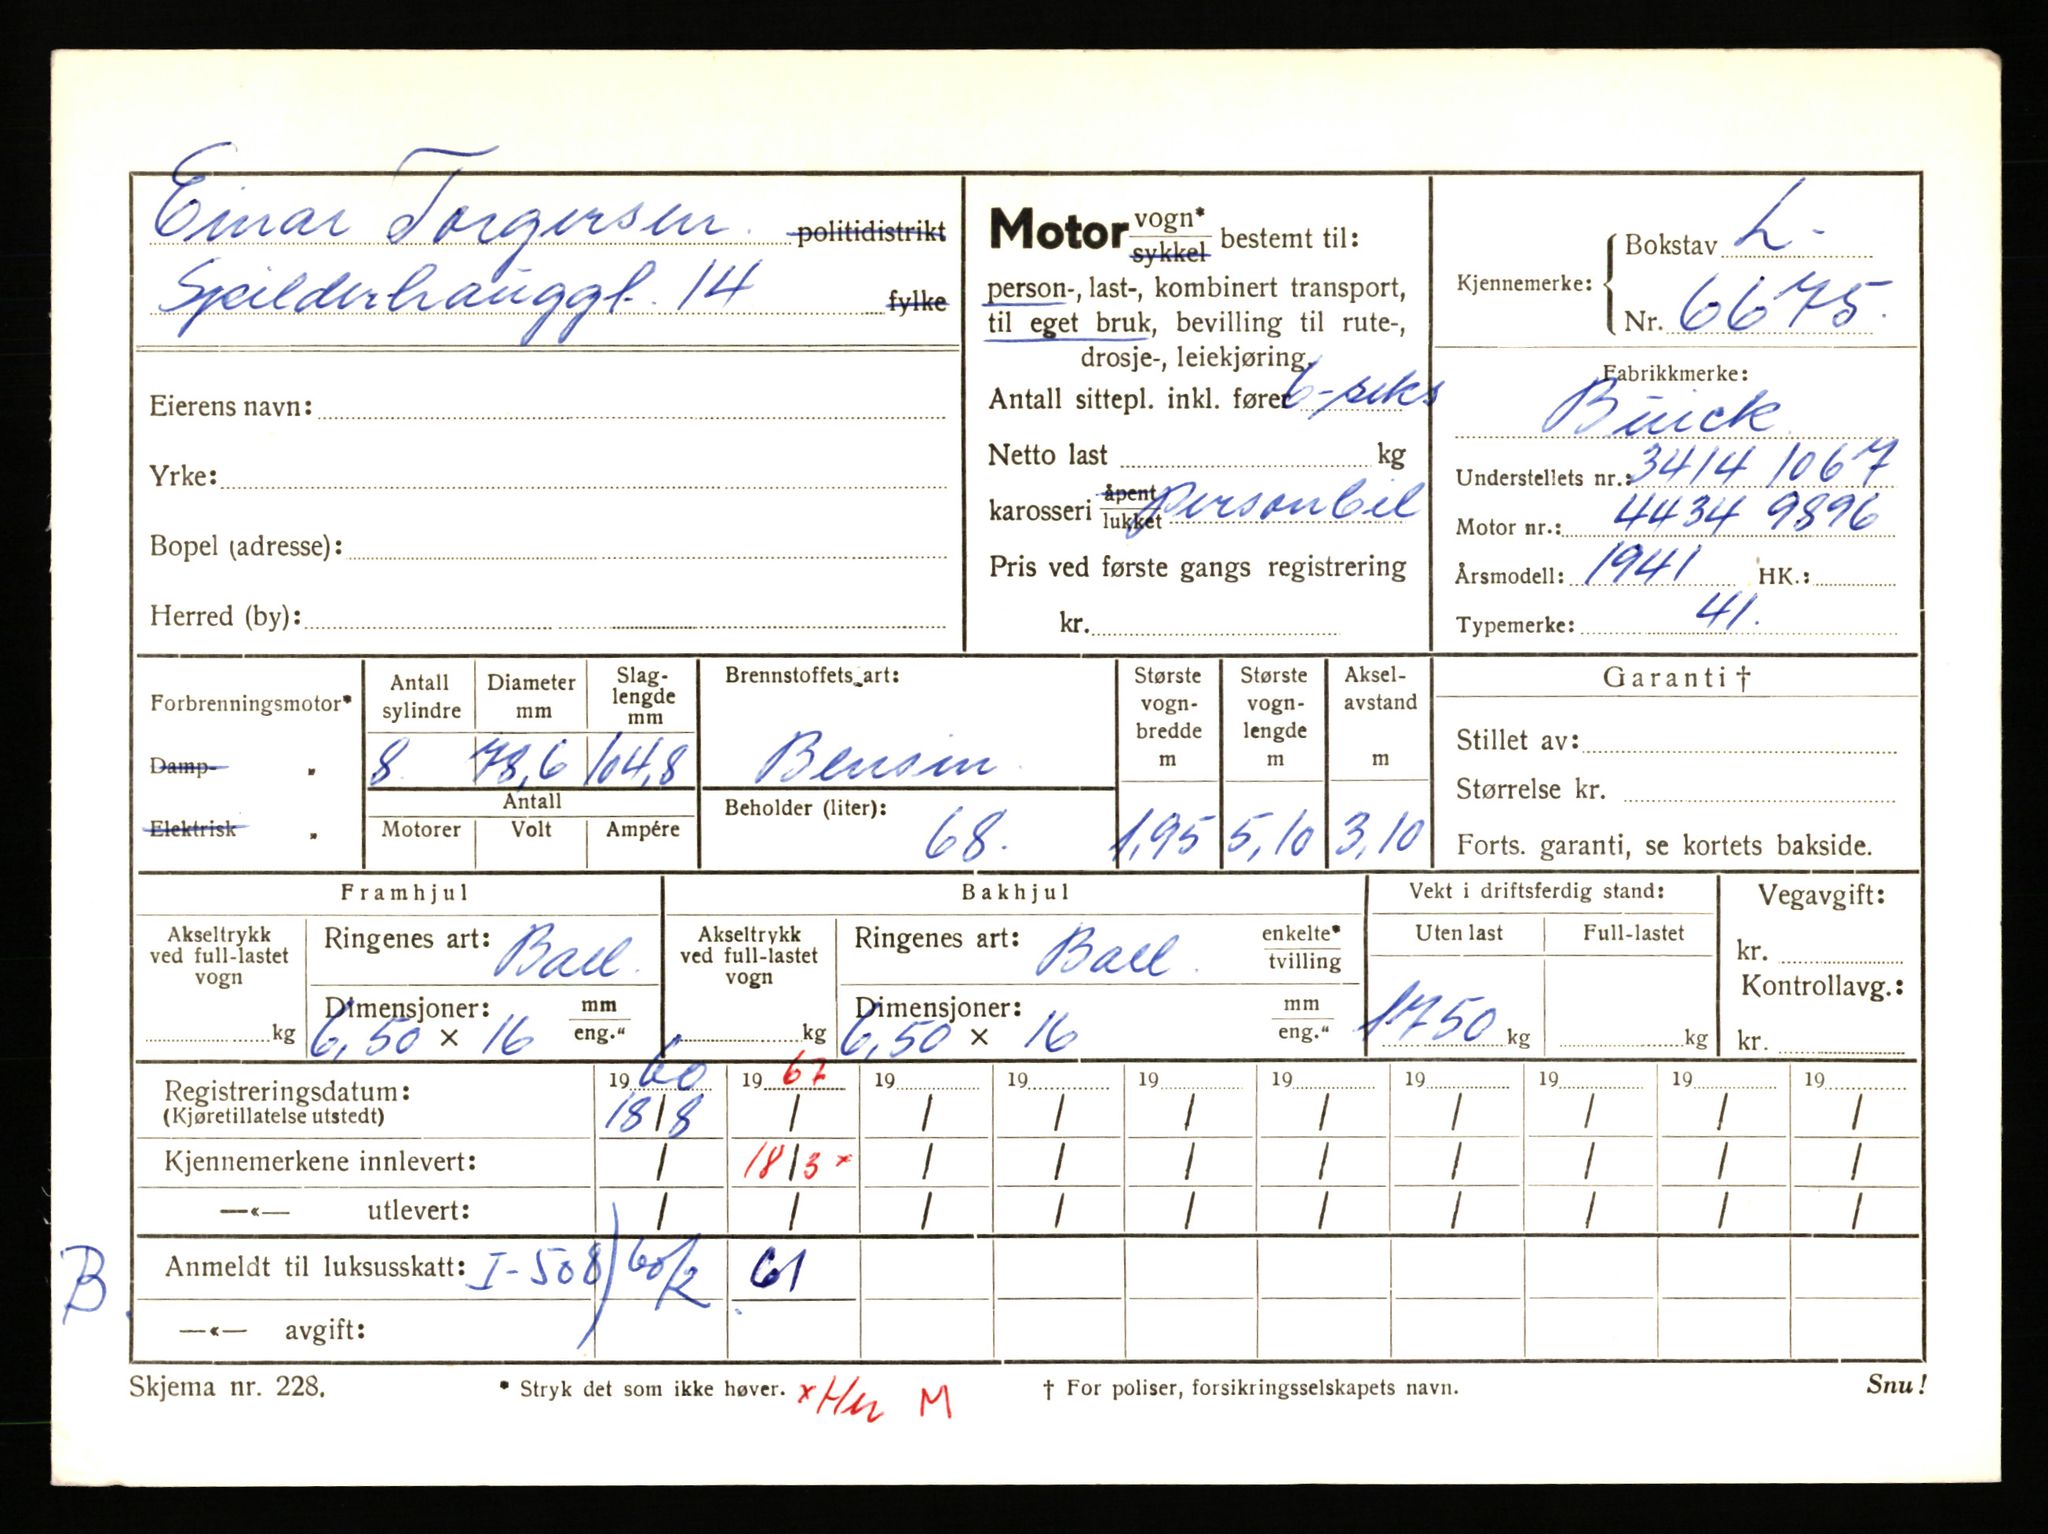 Einar Torgersen politidistrikt
Spilderhauggt. 14 fylke
Eierens navn:
Yrke:
Bopel (adresse):
Herred (by):
Motor vogn* sykkel bestemt til:
person-, last-, kombinert transport,
til eget bruk, bevilling til rute-,
drosje-, leiekjøring.
Antall sittepl. inkl. fører 6-seks
Netto last kg
karosseri åpent lukket personbil
Pris ved første gangs registrering
kr.
Kjennemerke: Bokstav L-
Nr. 6675.
Fabrikkmerke:
Buick
Understellets nr.: 3414 1067
Motor nr.: 4434 9896
Årsmodell: 1941 HK.:
Typemerke: 41.
Forbrenningsmotor*
Damp- „
Elektrisk „
Antall sylindre
Diameter mm
Slag-lengde mm
8 78,6 104,8
Antall
Motorer Volt Ampére
Brennstoffets art:
Bensin
Beholder (liter):
68.
Største vogn-bredde m
1,95
Største vogn-lengde m
5,10
Aksel-avstand m
3,10
Garanti †
Stillet av:
Størrelse kr.
Forts. garanti, se kortets bakside.
Framhjul
Akseltrykk ved full-lastet vogn
kg
Ringenes art: Ball.
Dimensjoner: mm eng."
6,50 × 16
Bakhjul
Akseltrykk ved full-lastet vogn
kg
Ringenes art: Ball. enkelte* tvilling
Dimensjoner: mm eng."
6,50 × 16
Vekt i driftsferdig stand:
Uten last Full-lastet
1750 kg kg
Vegavgift:
kr.
Kontrollavg.:
kr.
Registreringsdatum: 19 60 19 67 19 19 19 19 19 19 19 19
(Kjøretillatelse utstedt) 18/8 / / / / / / / / /
Kjennemerkene innlevert: / 18/3 × / / / / / / / /
—«— utlevert: / / / / / / / / / /
B. Anmeldt til luksusskatt: I-508) 60/2 61
—«— avgift:
Skjema nr. 228.
* Stryk det som ikke høver.
× Her M
† For poliser, forsikringsselskapets navn.
Snu!